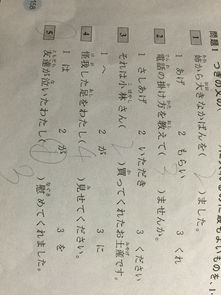 問題1 つぎの文の
最もよいものを、1
1 姉から大きなかばんを( 2 )ました。
1 あげ 2 もらい 3 くれ
2 電話の掛け方を教えて( )ませんか。
1 さしあげ 2 いただき 3 ください
3 それは小林さん( 2 )買ってくれたお土産です。
1 へ 2 が 3 に
4 怪我した足をわたし( )見せてください。
1 は 2 が 3 を
5 友達が泣いたわたし( )慰めてくれました。
158